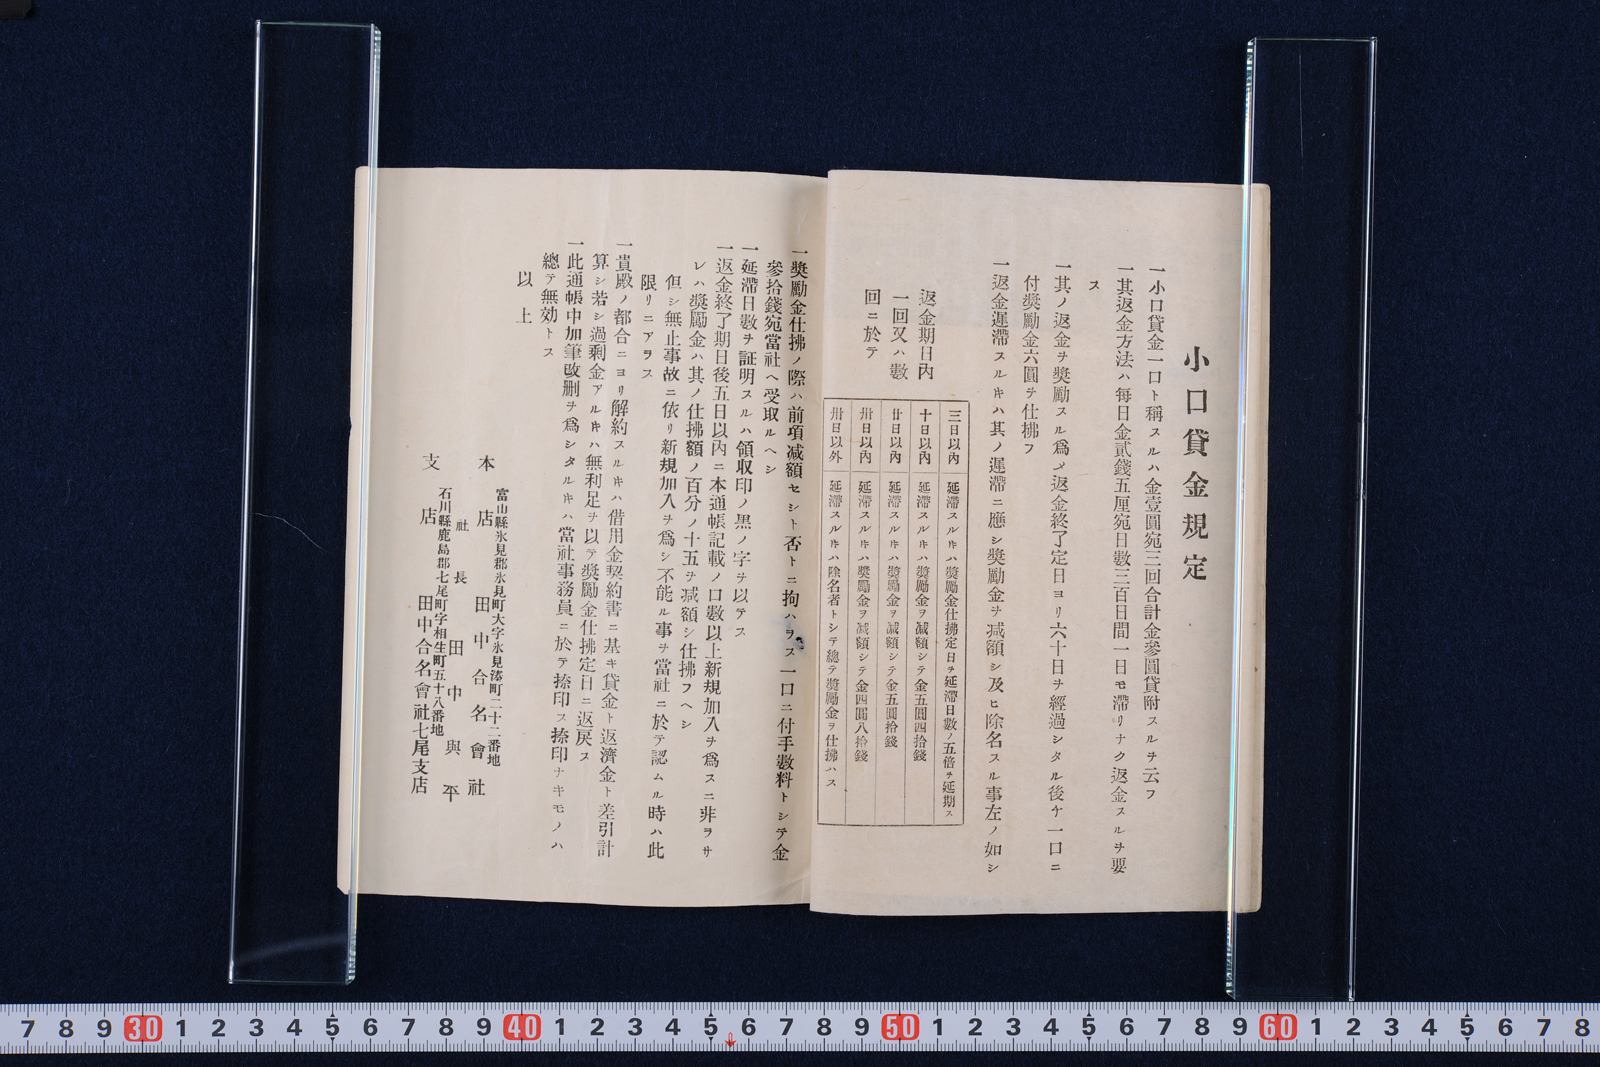 小口貸金規定
一小口貸金一口ト稱スルハ金壹圓宛三回合計金參圓貸附スルヲ云フ
一其返金方法ハ毎日金貳錢五厘宛日數三百日間一日モ滯リナク返金スルヲ要
ス
一其ノ返金ヲ奬勵スル爲メ返金終了定日ヨリ六十日ヲ經過シタル後ケ一口ニ
付奬勵金六圓ヲ仕拂フ
一返金遲滯スルキハ其ノ遲滯ニ應シ奬勵金ヲ减額シ及ヒ除名スル事左ノ如シ
返金期日內
一回又ハ數
回ニ於テ
三日以內 延滯スルキハ奬勵金仕拂定日ヲ延滯日數ノ五倍ヲ延期ス
十日以內 延滯スルキハ奬勵金ヲ减額シテ金五圓四拾錢
廿日以內 延滯スルキハ奬勵金ヲ减額シテ金五圓拾錢
卅日以內 延滯スルキハ奬勵金ヲ减額シテ金四圓八拾錢
卅日以外 延滯スルキハ除名者トシテ總テ奬勵金ヲ仕拂ハス
一奬勵金仕拂ノ際ハ前項减額セシト否トニ拘ハヲス一口ニ付手數料トシテ金
參拾錢宛當社ヘ受取ルヘシ
一延滯日數ヲ証明スルハ領収印ノ黒ノ字ヲ以テス
一返金終了期日後五日以內ニ本通帳記載ノ口數以上新規加入ヲ爲スニ非ラサ
レハ奬勵金ハ其ノ仕拂額ノ百分ノ十五ヲ减額シ仕拂フヘシ
但シ無止事故ニ依リ新規加入ヲ爲シ不能ル事ヲ當社ニ於テ認ムル時ハ此
限リニアラス
一貴殿ノ都合ニヨリ解約スルキハ借用金契約書ニ基キ貸金ト返濟金ト差引計
算シ若シ過剩金アルキハ無利足ヲ以テ奬勵金仕拂定日ニ返戻ス
一此通帳中加筆改刪ヲ爲シタルキハ當社事務員ニ於テ捺印ス捺印ナキモノハ
總テ無効トス
以上
富山縣氷見郡氷見町大字氷見湊町二十二番地
本店 田中合名會社
社長 田中與平
石川縣鹿島郡七尾町字相生町五十八番地
支店 田中合名會社七尾支店
7 8 9 30 1 2 3 4 5 6 7 8 9 40 1 2 3 4 5 6 7 8 9 50 1 2 3 4 5 6 7 8 9 60 1 2 3 4 5 6 7 8